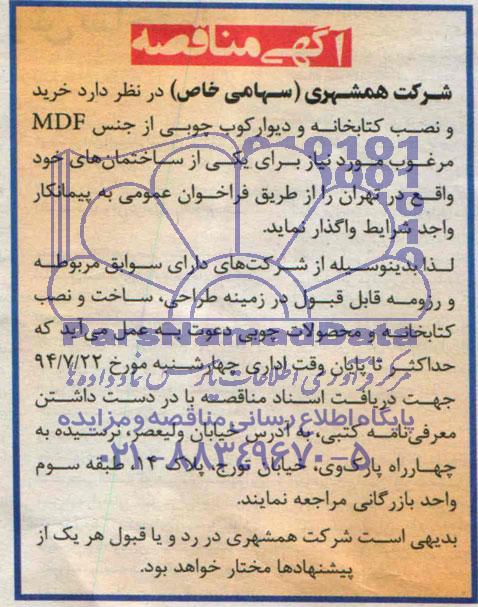 آگهی مناقصه
شرکت همشهری (سهامی خاص) در نظر دارد خرید
و نصب کتابخانه و دیوارکوب چوبی از جنس MDF
مرغوب مورد نیاز برای یکی از ساختمان‌های خود
واقع در تهران را از طریق فراخوان عمومی به پیمانکار
واجد شرایط واگذار نماید.
لذا بدینوسیله از شرکت‌های دارای سوابق مربوطه
و رزومه قابل قبول در زمینه طراحی، ساخت و نصب
کتابخانه و محصولات چوبی دعوت به عمل می‌آید که
حداکثر تا پایان وقت اداری چهارشنبه مورخ ۹۴/۷/۲۲
جهت دریافت اسناد مناقصه با در دست داشتن
معرفی‌نامه کتبی، به آدرس خیابان ولیعصر، نرسیده به
چهارراه پارک‌وی، خیابان تورج، پلاک ۱۴ طبقه سوم
واحد بازرگانی مراجعه نمایند.
بدیهی است شرکت همشهری در رد و یا قبول هر یک از
پیشنهادها مختار خواهد بود.
ParsNamadData
مرکز فرآوری اطلاعات پارس نماد داده‌ها
پایگاه اطلاع رسانی مناقصه و مزایده
۰۲۱-۸۸۳۴۹۶۷۰-۵